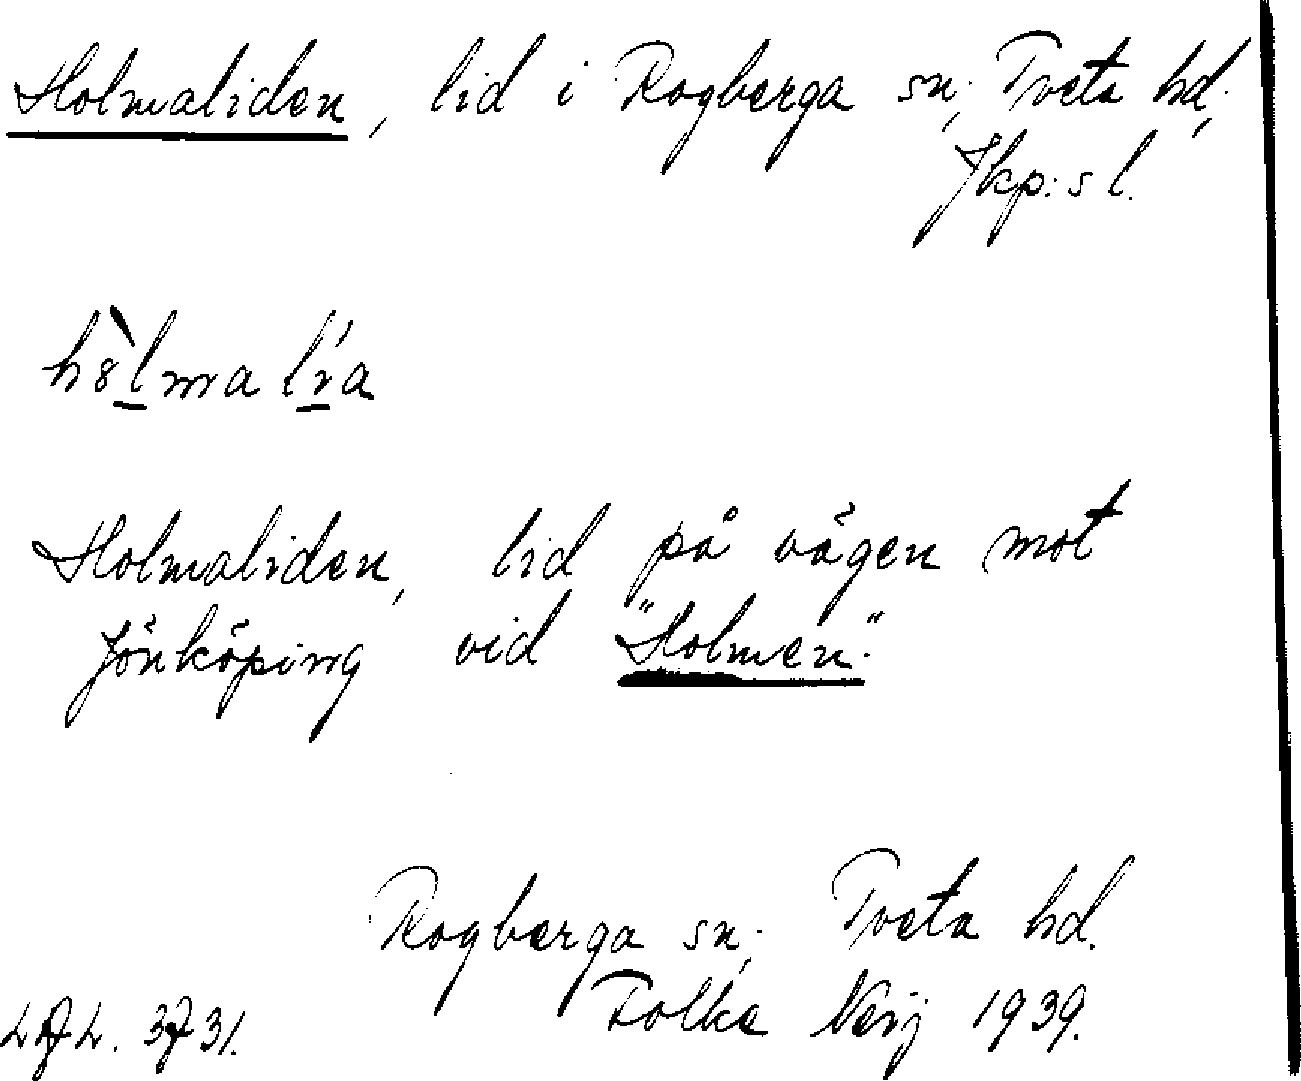 Holmaliden, lid i Rogberga sn., Tveta hd.,
Jkp:s l.
hòlmalía
Holmaliden, lid på vägen mot
Jönköping vid "Holmen".
Rogberga sn., Tveta hd.
3731. Folke Verj 1939.